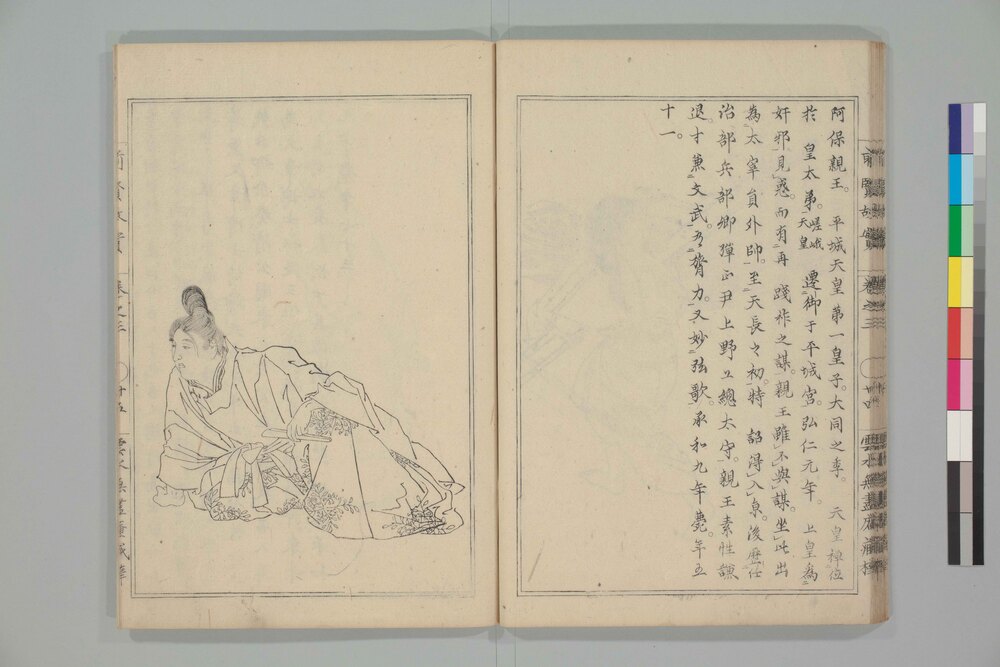 阿保親王。 平城天皇第一皇子。大同之季。 天皇禅位
於 皇太弟。嵯峨天皇 遷御于平城宮。弘仁元年。 上皇為
奸邪見惑。而有再 踐祚之謀。親王雖不與謀。坐此出
為太宰員外帥。至天長之初。特 詔得入京。後歴仕
治部兵部卿弾正尹上野上總太守。親王素性謙
退。才兼文武。有膂力。又妙弦歌。承和九年薨。年五
十一。
前賢故實 巻之三